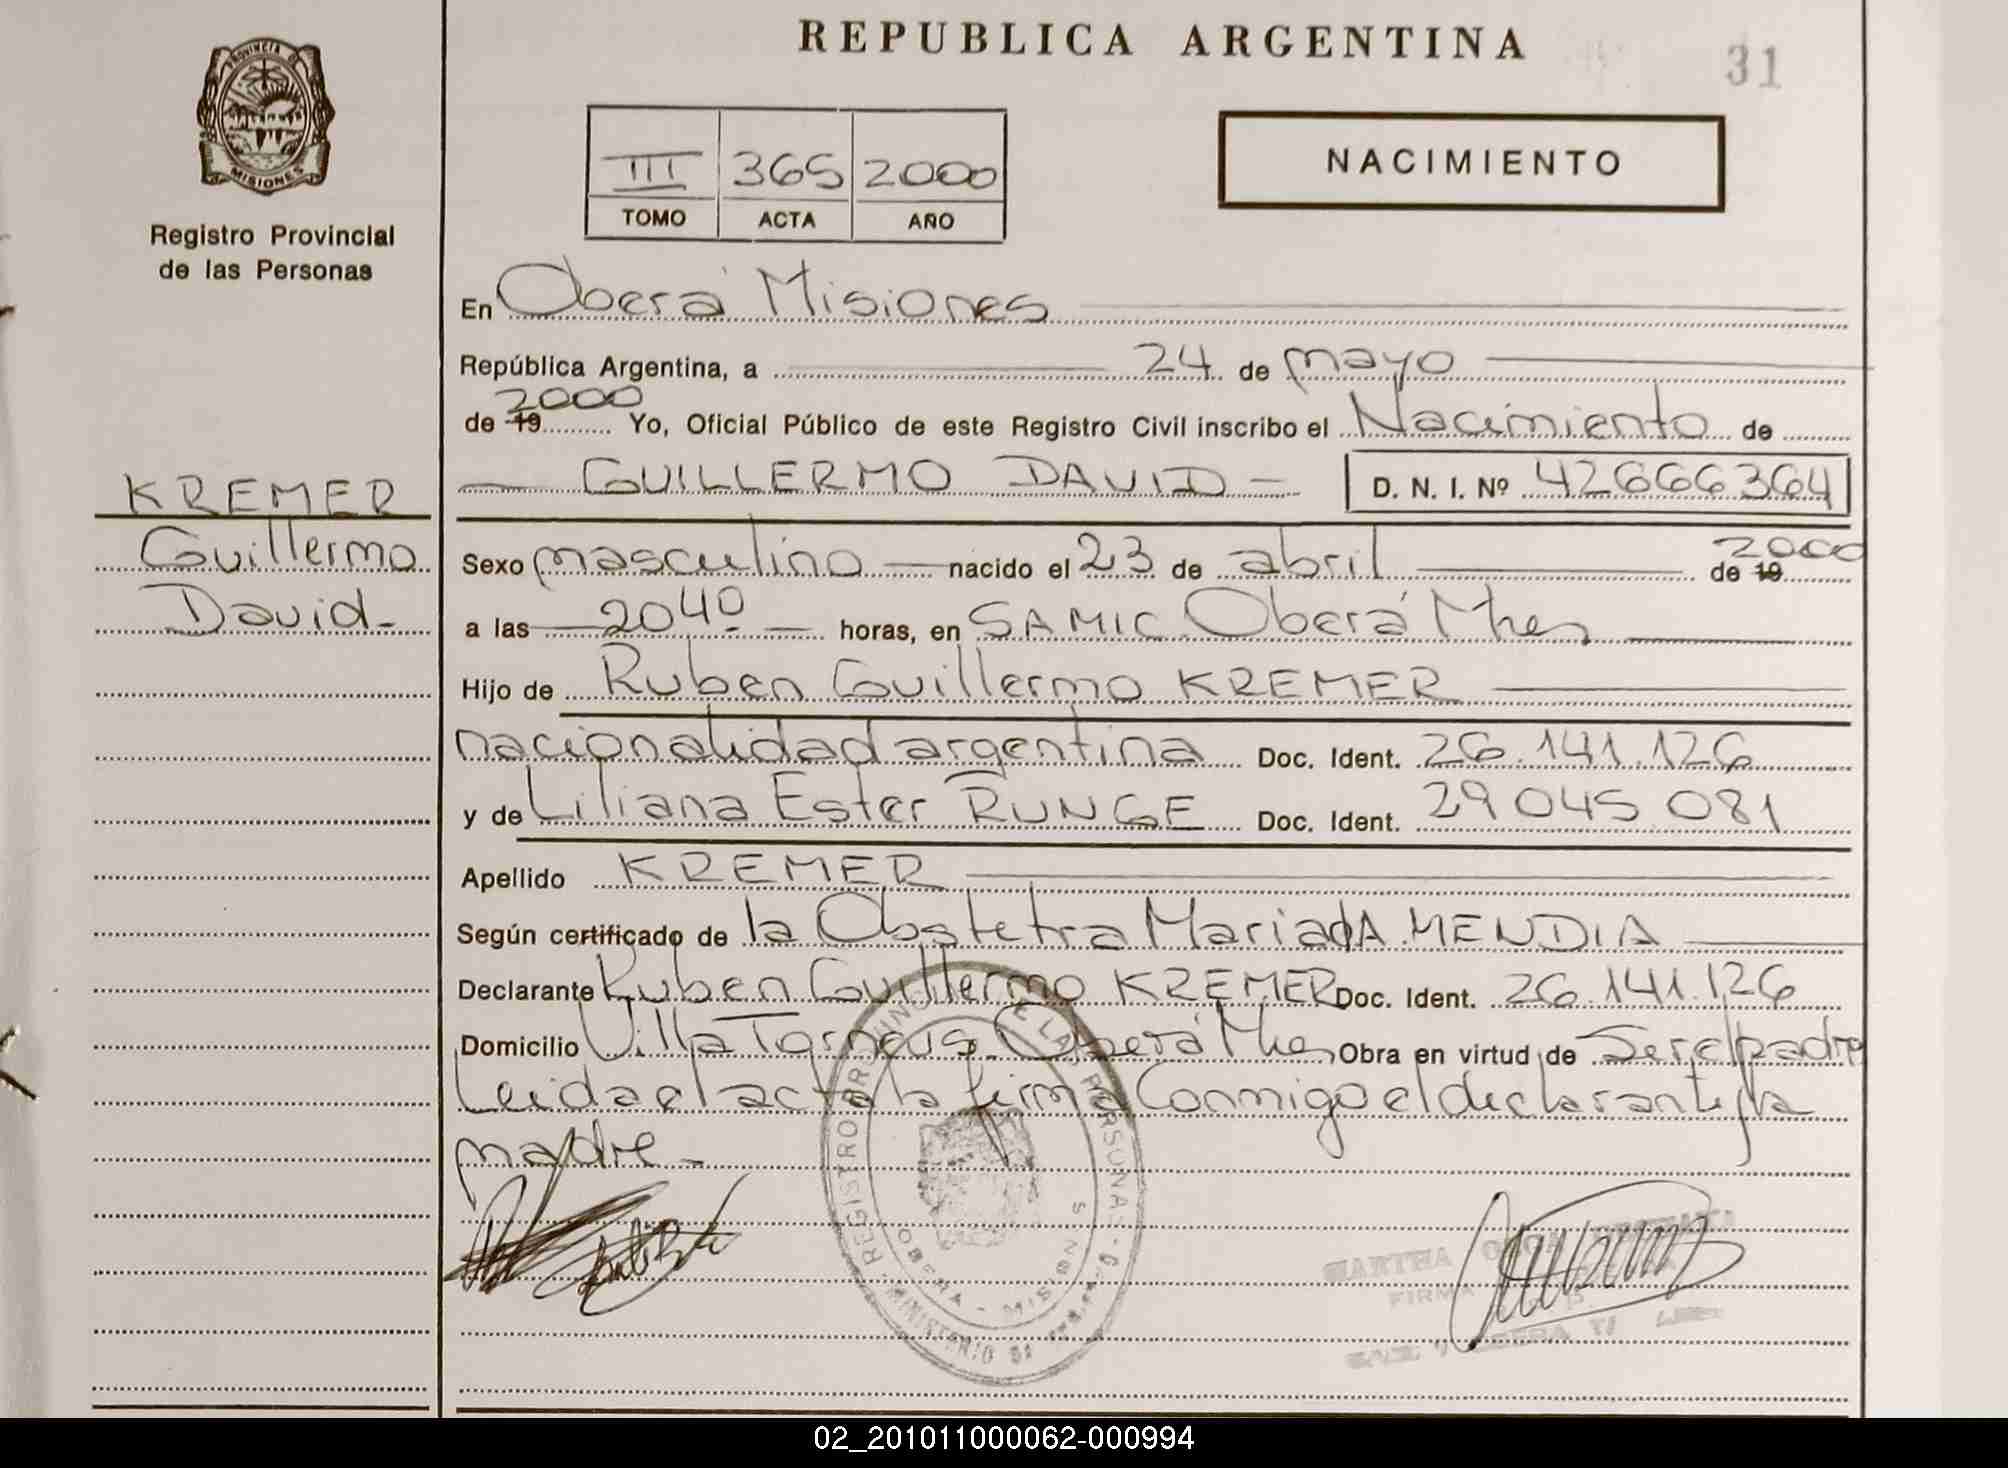 REPUBLICA ARGENTINA
31
PROVINCIA DE
MISIONES
Registro Provincial
de las Personas
III 365 2000
TOMO ACTA AÑO
NACIMIENTO
En Oberá Misiones
República Argentina, a 24 de mayo
de 19 2000 Yo, Oficial Público de este Registro Civil inscribo el Nacimiento de
GUILLERMO DAVID D. N. I. Nº 42666364
KREMER
Guillermo
David
Sexo masculino nacido el 23 de abril de 19 2000
a las 2040 horas, en SAMIC Oberá Mnes
Hijo de Ruben Guillermo KREMER
nacionalidad argentina Doc. Ident. 26.141.126
y de Liliana Ester RUNGE Doc. Ident. 29045081
Apellido KREMER
Según certificado de la Obstetra Maria A. MENDIA
Declarante Ruben Guillermo KREMER Doc. Ident. 26.141.126
Domicilio Villa Oberá Mnes Obra en virtud de Ser el padre
Leida el acta la firma Conmigo el declarante y la
madre
REGISTRO DE LAS PERSONAS
MINISTERIO DE
MISIONES
MARTHA
FIRMA
02_201011000062-000994